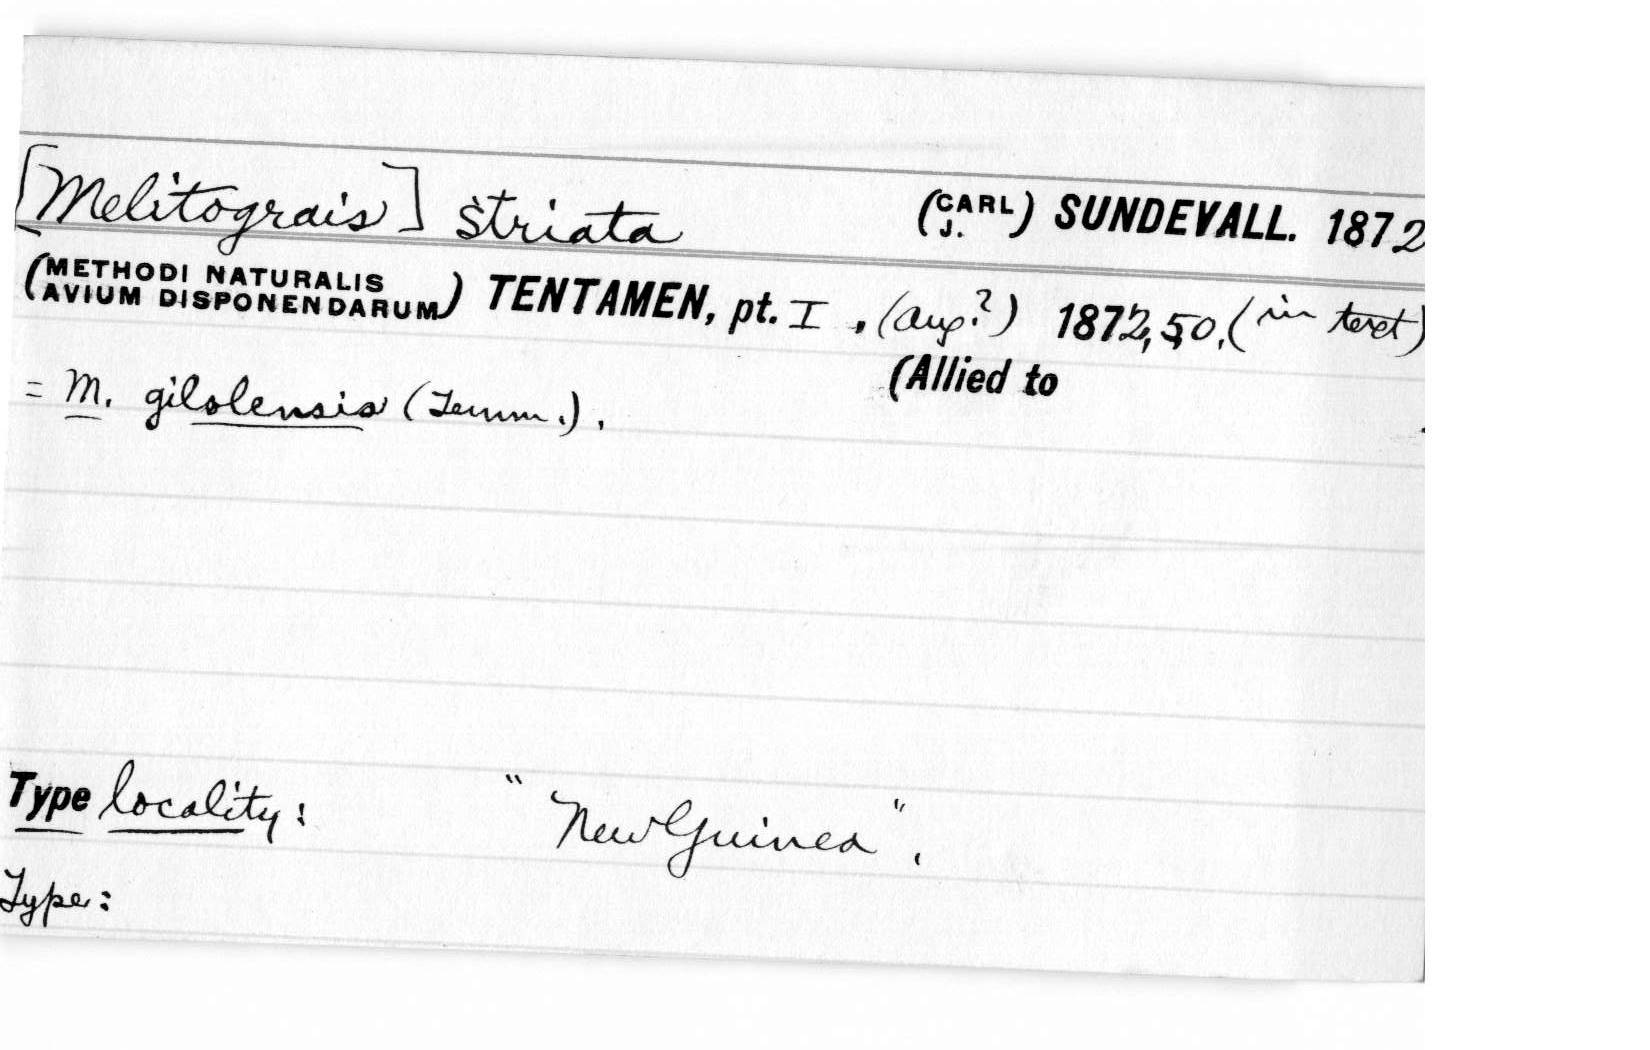 [Melitograis] striata (CARL J.) SUNDEVALL. 1872
(METHODI NATURALIS AVIUM DISPONENDARUM) TENTAMEN, pt. I, (Aug.?) 1872, 50, (in text)
(Allied to
= M. gilolensis (Temm.).
Type locality: "New Guinea".
Type: